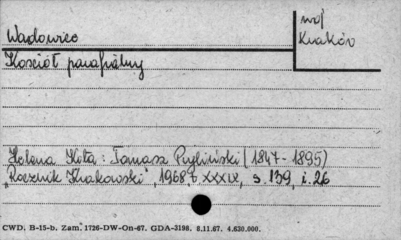 Wadowice
woj
Kraków
Kościół parafialny
Helena Kita: Tomasz Pryliński (1847-1895)
"Rocznik Krakowski", 1968, t XXXIX, s. 139, i. 26
CWD. B-15-b. Zam. 1726-DW-On-67. GDA-3198. 8.11.67. 4.630.000.